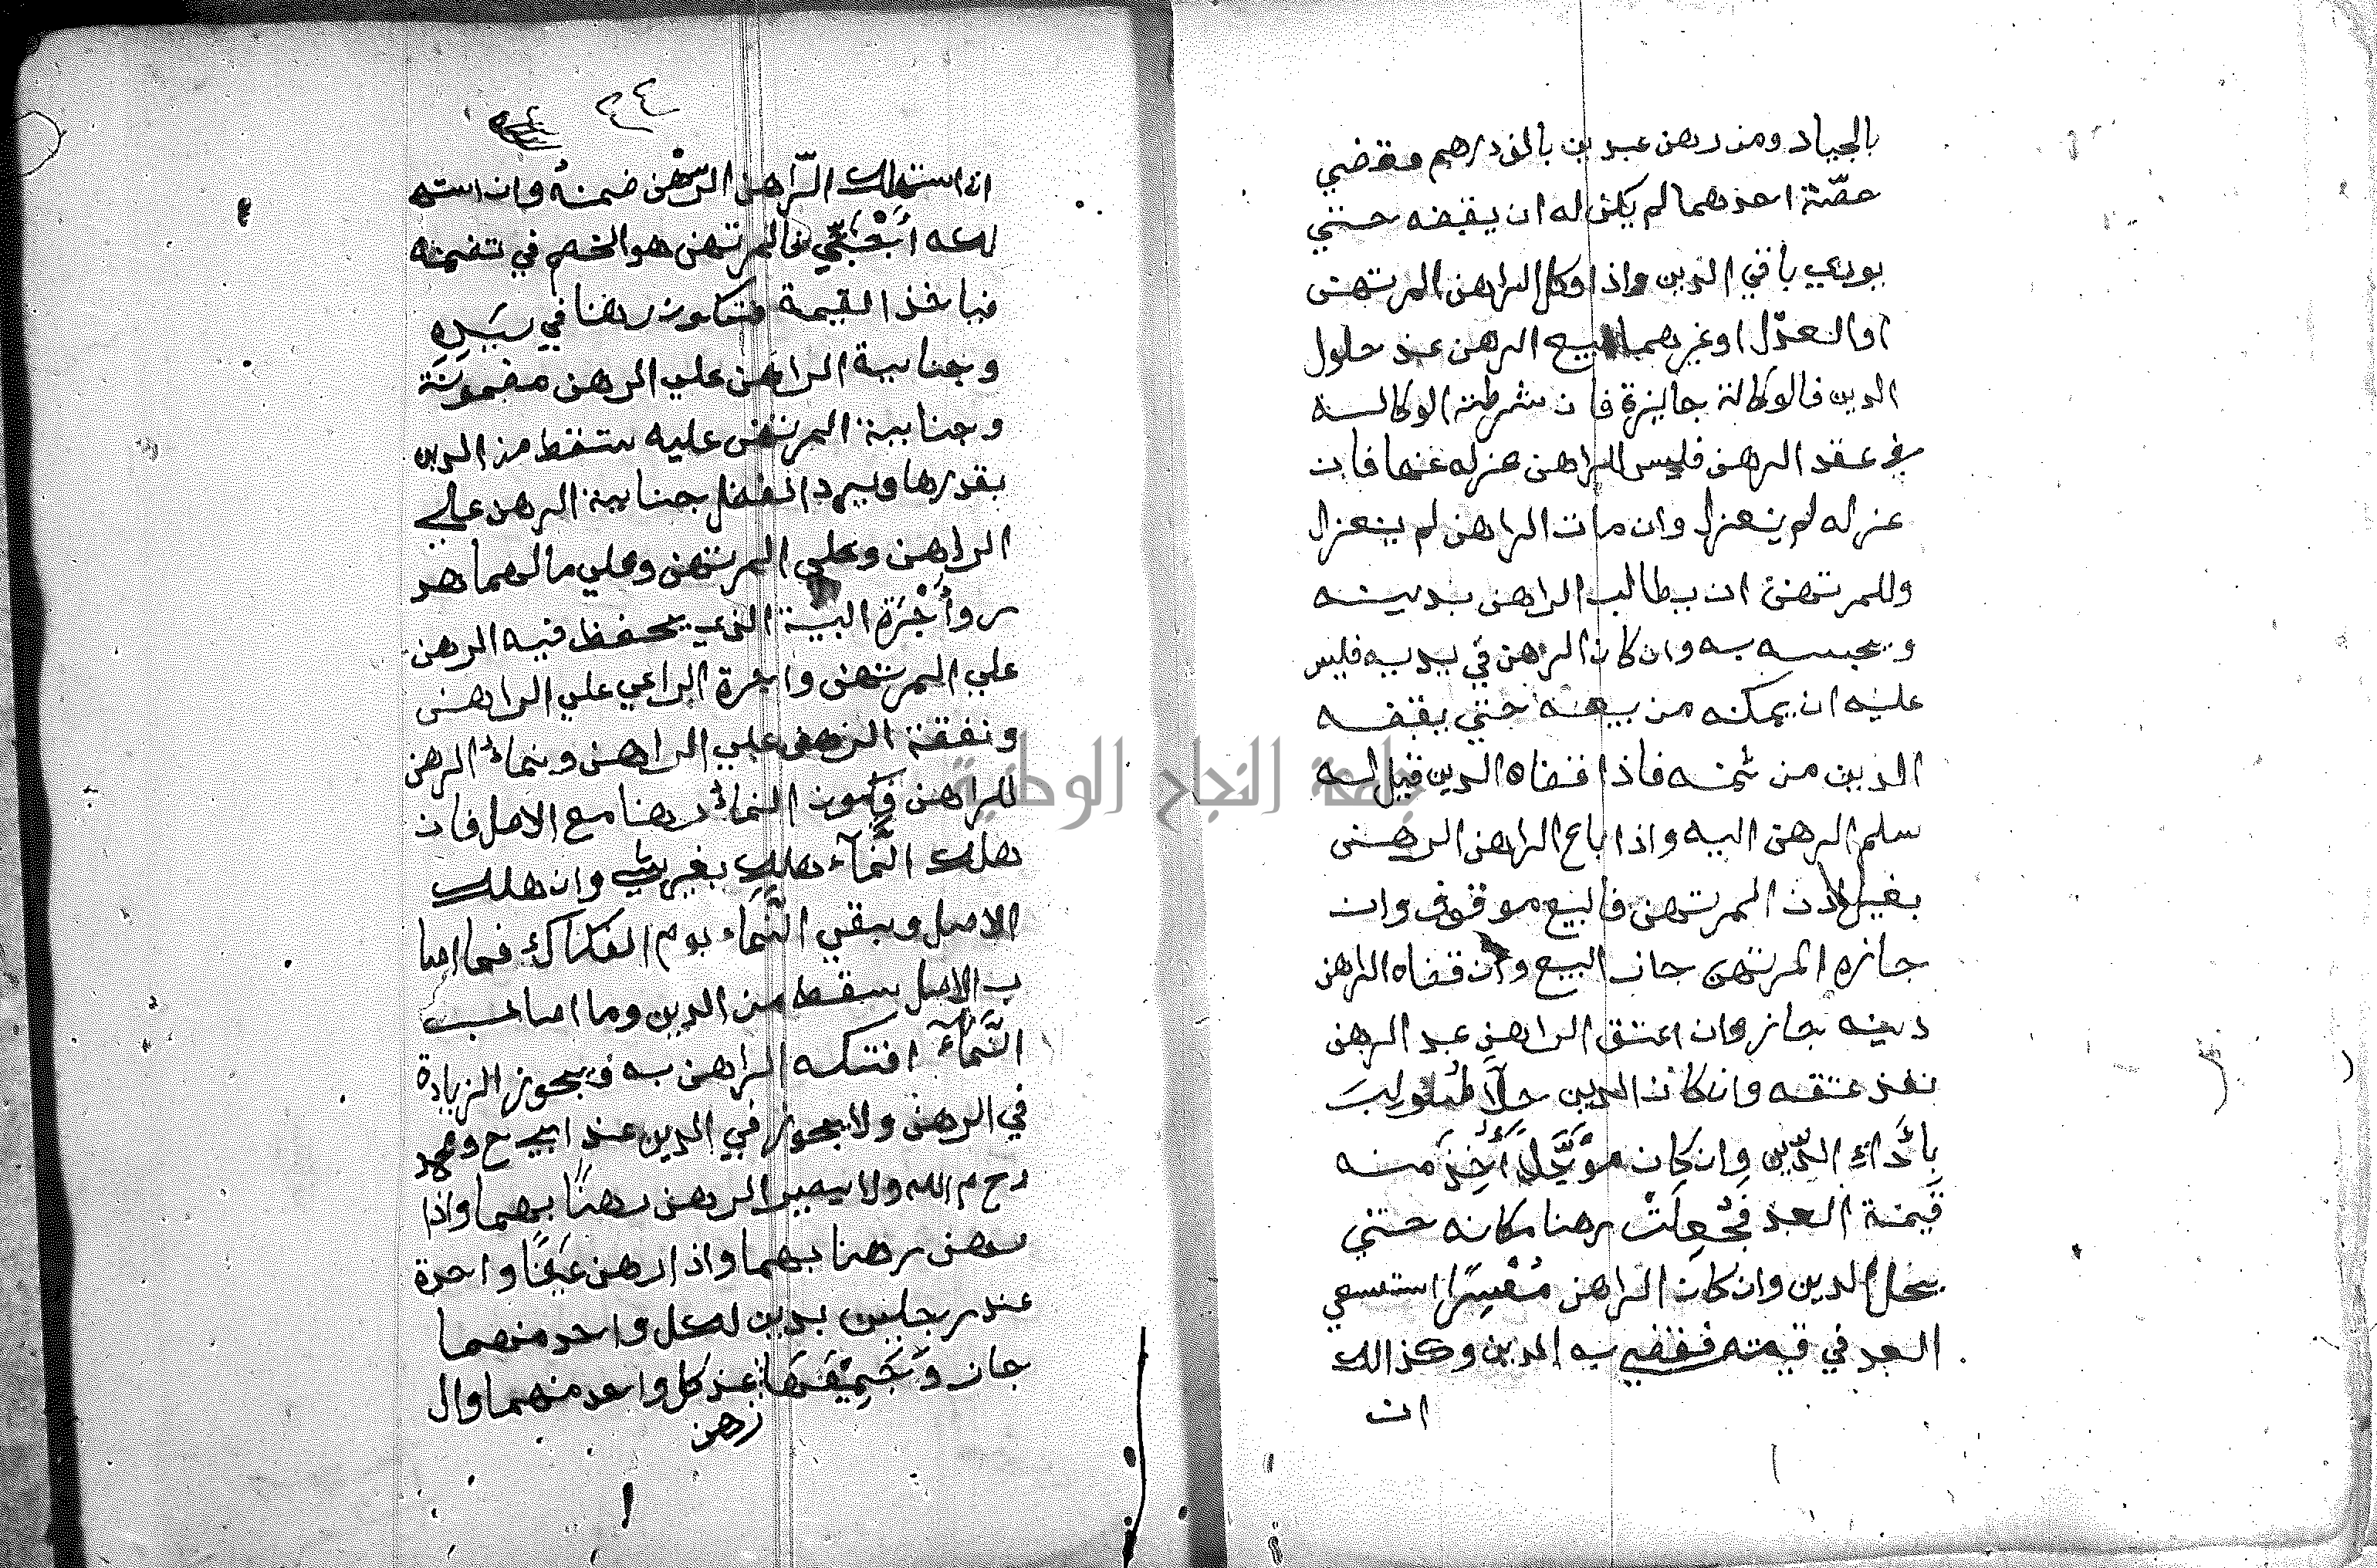 بالجياد ومن رهن عبدين بالف درهم فقضي
حصّة احدهما لم يكن له ان يقبضه حتي
يودي باقي الدين واذا وكل الراهن المرتهن
او العدل او غيرهما ببيع الرهن عند حلول
الدين فالوكالة جايزة فان شرطت الوكالة
في عقد الرهن فليس للراهن عزله عنها فان
عزله لم ينعزل وان مات الراهن لم ينعزل
وللمرتهن ان يطالب الراهن بدينه
ويحبسه به وان كان الرهن في يديه فليس
عليه ان يمكنه من بيعه حتي يقبضه
الدين من ثمنه فاذا قضاه الدين قيل له
سلم الرهن اليه واذا باع الراهن الرهن
بغير اذن المرتهن فالبيع موقوف وان
جازه المرتهن جاز البيع وان قضاه الراهن
دينه جاز وان اعتق الراهن عبد الرهن
نفذ عتقه وان كان الدين حالّا طولب
بِاَدَّاءِ الدّين وان كان مؤَجَّلاً اُخِذَ منه
قيمة العبد فجُعِلَتْ رهنا مكانه حتي
يحل الدين وان كان الراهن مُعْسِرًا استسعي
العبد في قيمته فقضي به الدين وكذالك
ان
٤٤
ان استهلك الرّاهن الرهن ضمنهُ وان استه
لكه اَجْنَبِيّ فالمرتهن هو الخصم في تضمينه
فياخذ القيمة فتكون رهنا في يَدِهِ
وجناية الراهن علي الرهن مضمونَة
وجناية المرتهن عليه ستقط من الدين
بقدرها ويرد الفضل جناية الرهن علي
الراهن وعلي المرتهن وعلي مالهما هد
ر وأُجْرَة البية الذي يحفظ فيه الرهن
علي المرتهن واجرة الراعي علي الراهن
ونفقة الرهن علي الراهن ونماءُ الرهن
للراهن فيكون النماءُ رهنا مع الاصل فان
هلك النَّمآء هلك بغير شي وان هلك
الاصل وبقي النَّماء يوم الفكاك فما اصا
ب الاصل سقط من الدين وما اصاب
النَّمآءَ افتتكه الراهن به فيجوز الزيادة
في الرهن ولا يجوز في الدين عند ابي ح ومحمد
رح م الله ولا يصير الرهن رهنًا بهما واذا
رهن رهنا بهما واذا رهن عَينًا واحدة
عند رجلين بدين لكل واحد منهما
جاز وَجَمِيْعَهَا عند كل واحد منهما وال
رهن
جامعة النجاح الوطنية